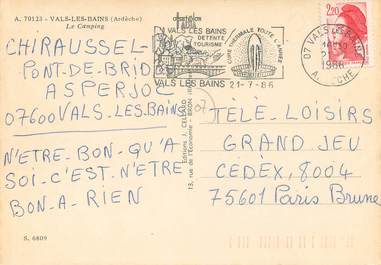 A. 70123 - VALS-LES-BAINS (Ardèche)
Le Camping
CHIRAUSSEL
PONT-DE-BRID
ASPERJOC
07600 VALS-LES-BAINS
N'ETRE-BON-QU'A
SOI-C'EST-N'ETRE
BON-A-RIEN
S. 6809
Editions J. CELLARD
13, rue de l'Economie - BRON
VALS LES BAINS
DETENTE
TOURISME
CURE THERMALE TOUTE L'ANNEE
VALS LES BAINS 21-7-86
07 VALS LES BAINS
1986
ARDECHE
2,20
07
TÉLÉ-LOISIRS
GRAND JEU
CEDEX, 8004
75601 Paris Brune